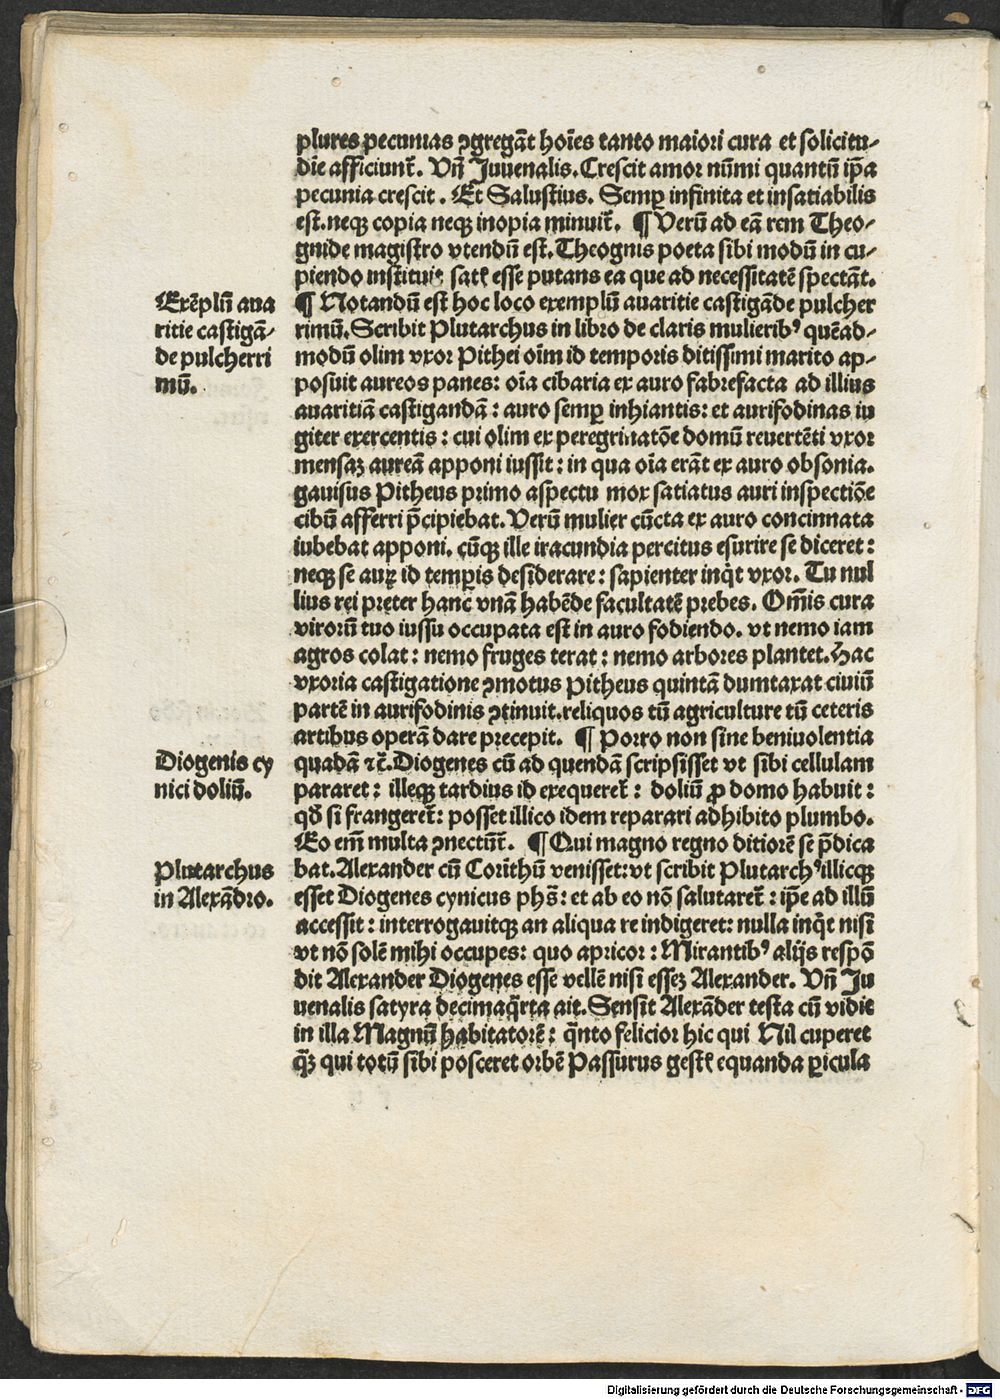 plures pecunias ꝯgregãt hoĩes tanto maiori cura et solicitu-
dĩe afficiunt̃. Vñ Juuenalis. Crescit amor nũmi quantũ ip̃a
pecunia crescit. Et Salustius. Semꝑ infinita et insatiabilis
est. neqꝫ copia neqꝫ inopia minuit̃. ¶ Verũ ad eã rem Theo-
gnide magistro vtendũ est. Theognis poeta sibi modũ in cu-
piendo instituit satꝭ esse putans ea que ad necessitatẽ spectãt.
Exẽplũ aua
ritie castigã-
de pulcherri
mũ.
¶ Notandũ est hoc loco exemplũ auaritie castigãde pulcher
rimũ. Scribit Plutarchus in libro de claris mulieribꝰ quẽad-
modũ olim vxor Pithei oĩm id temporis ditissimi marito ap-
posuit aureos panes: oĩa cibaria ex auro fabrefacta ad illius
auaritiã castigandã: auro semꝑ inhiantis: et aurifodinas iu
giter exercentis: cui olim ex peregrinatõe domũ reuertẽti vxor
mensaꝫ aureã apponi iussit: in qua oĩa erãt ex auro obsonia.
gauisus Pitheus primo aspectu mox satiatus auri inspectiõe
cibũ afferri p̃cipiebat. Verũ mulier cũcta ex auro concinnata
iubebat apponi. cũqꝫ ille iracundia percitus esurire se diceret:
neqꝫ se auꝝ id temꝑis desiderare: sapienter inq̃t vxor. Tu nul
lius rei preter hanc vnã habẽde facultatẽ prebes. Om̃is cura
virorũ tuo iussu occupata est in auro fodiendo. vt nemo iam
agros colat: nemo fruges terat: nemo arbores plantet. Hac
vxoria castigatione ꝯmotus Pitheus quintã dumtaxat ciuiũ
partẽ in aurifodinis ꝯtinuit. reliquos tũ agriculture tũ ceteris
artibus operã dare precepit. ¶ Porro non sine beniuolentia
Diogenis cy
nici doliũ.
quadã ⁊c̃. Diogenes cũ ad quendã scripsisset vt sibi cellulam
pararet: illeqꝫ tardius id exequeret̃: doliũ ꝓ domo habuit:
qđ si frangeret̃: posset illico idem reparari adhibito plumbo.
Eo em̃ multa ꝯnectũt̃. ¶ Qui magno regno ditiorẽ se p̃dica
Plutarchus
in Alexãdro.
bat. Alexander cũ Corĩthũ venisset: vt scribit Plutarchꝰ illicqꝫ
esset Diogenes cynicus phs̃: et ab eo nõ salutaret̃: ip̃e ad illũ
accessit: interrogauitqꝫ an aliqua re indigeret: nulla inq̃t nisi
vt nõ solẽ mihi occupes: quo apricor: Mirantibꝰ alijs respõ
dit Alexander Diogenes esse vellẽ nisi esseꝫ Alexander. Vñ Ju
uenalis satyra decimaq̃rta ait. Sensit Alexãder testa cũ vidit
in illa Magnũ habitatorẽ: q̃nto felicior hic qui Nil cuperet
q̃ꝫ qui totũ sibi posceret orbẽ Passurus gestꝭ equanda ꝑicula
Digitalisierung gefördert durch die Deutsche Forschungsgemeinschaft - DFG